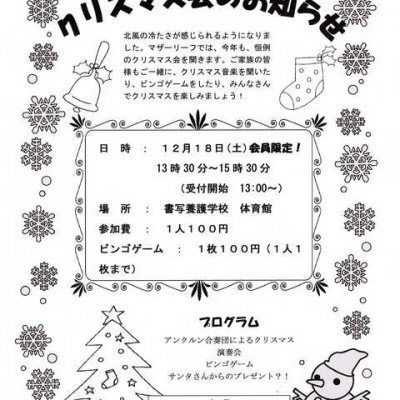 クリスマス会のお知らせ
北風の冷たさが感じられるようになり
ました。マザーリーフでは、今年も、恒例
のクリスマス会を開きます。ご家族の皆
様もご一緒に、クリスマス音楽を聞いた
り、ビンゴゲームをしたり、みんなさん
でクリスマスを楽しみましょう！
日　時　：　１２月１８日（土）会員限定！
１３時３０分～１５時３０分
（受付開始　１３：００～）
場　所　：　書写養護学校　体育館
参加費　：　１人１００円
ビンゴゲーム　：　１枚１００円（１人１
枚まで）
プログラム
アンクルン合奏団によるクリスマス
演奏会
ビンゴゲーム
サンタさんからのプレゼント？！